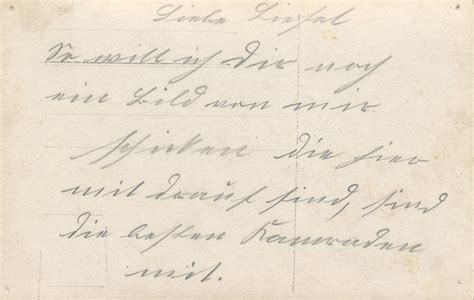 Liebe Liesel
So will ich Dir noch
ein Bild von mir
schicken die hier
mit drauf sind, sind
die besten Kamraden
mit.